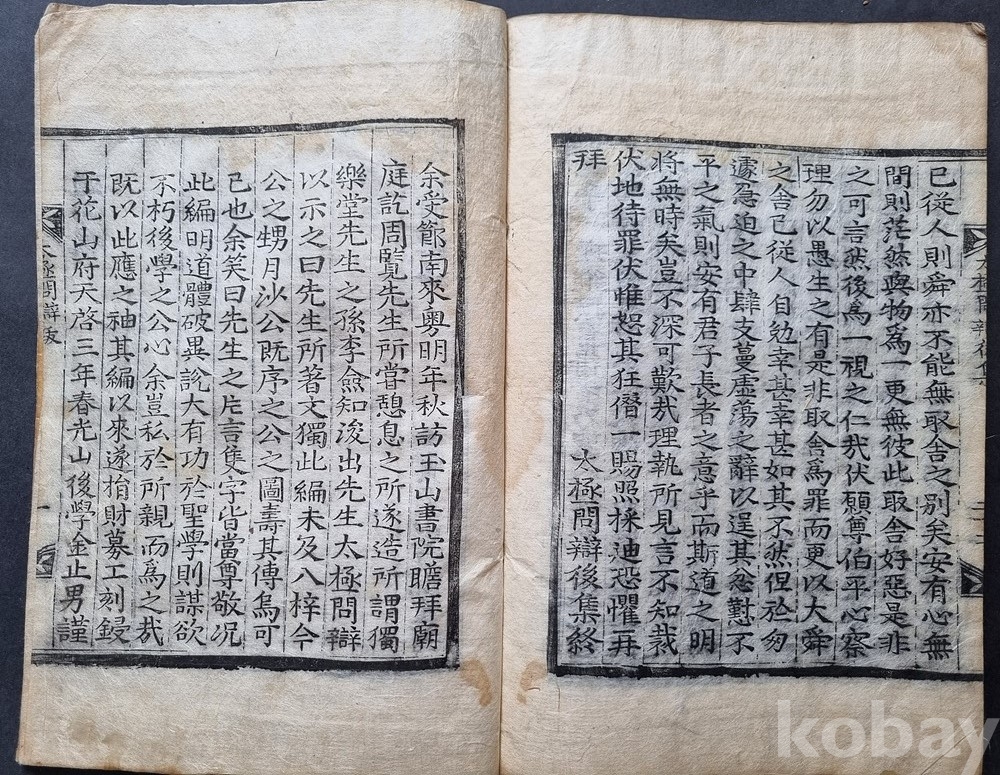 已從人則舜亦不能無取舍之別矣安有心無
間則茫然與物爲一更無彼此取舍好惡是非
之可言然後爲一視之仁哉伏願尊伯平心察
理勿以愚生之有是非取舍爲罪而更以大舜
之舍己從人自勉幸甚幸甚如其不然但於匆
遽急迫之中肆支蔓虛蕩之辭以逞其忿懟不
平之氣則安有君子長者之意乎而斯道之明
將無時矣豈不深可歎哉理執所見言不知裁
伏地待罪伏惟恕其狂僭一賜照採迪恐懼再
拜
太極問辯後集終
余受節南來粤明年秋訪玉山書院瞻拜廟
庭訖周覽先生所嘗憩息之所遂造所謂獨
樂堂先生之孫李僉知浚出先生太極問辯
以示之曰先生所著文獨此編未及入梓今
公之甥月沙公既序之公之圖壽其傳烏可
已也余笑曰先生之片言隻字皆當尊敬况
此編明道體破異說大有功於聖學則謀欲
不朽後學之公心余豈私於所親而爲之哉
既以此應之袖其編以來遂捐財募工刻鋟
于花山府天啓三年春光山後學金止男謹
太極問辯跋
一
kobay